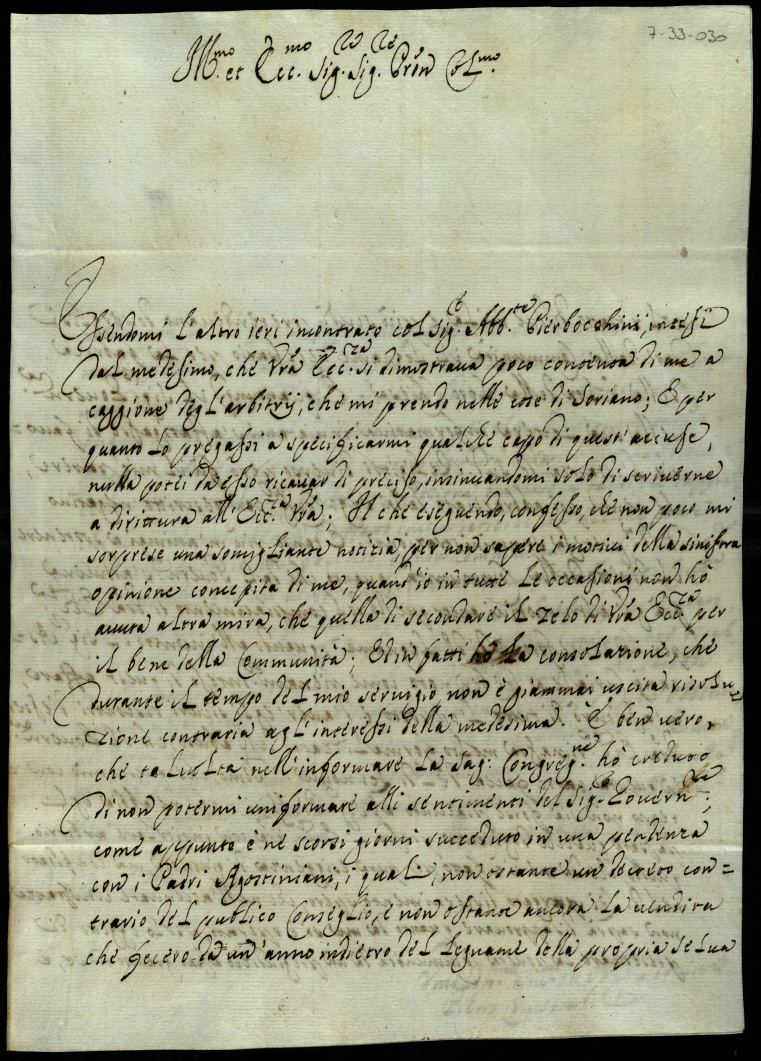 7-33-030
Ill.mo et Ecc.mo Sig.re Sig.re Pron Col.mo
Essendomi l'altro ieri incontrato col Sig.e Abb.te Pierbocchini, intesi
dal medesimo, che Vrã Ecc.za si dimostraua poco contenta di me a
caggione degl'arbitrij, che mi prendo nelle cose di Soriano; E per
quanto lo pregassi a specificarmi qualche cappo di quest'accuse,
nulla potei da esso ricauar di preciso, insinuandomi solo di scriuerne
a dirittura all'Ecc.za Vrã; Il che eseguendo, confesso, che non poco mi
sorprese una somigliante notizia, per non sapere i motiui della sinistra
opinione concepita di me, quand'io in tutte le occasioni non hò
auuta altra mira, che quella di secondare il zelo di Vrã Ecc.za per
il bene della Communità; Ed in fatti hò la consolazione, che
durante il tempo del mio seruigio non è giammai uscita risolu=
zione contraria agl'interessi della medesima. È ben uero,
che taluolta nell'informare la Sag: Congreg.ne hò creduto
di non potermi uniformare alli sentimenti del Sig.e Gouern.re;
come appunto è ne scorsi giorni succeduto in una pendenza
con i Padri Agostiniani, i quali, non ostante un decreto con=
trario del publico Conseglio, e non ostante ancora la uendita
che fecero da un'anno indietro del legname della propria selua